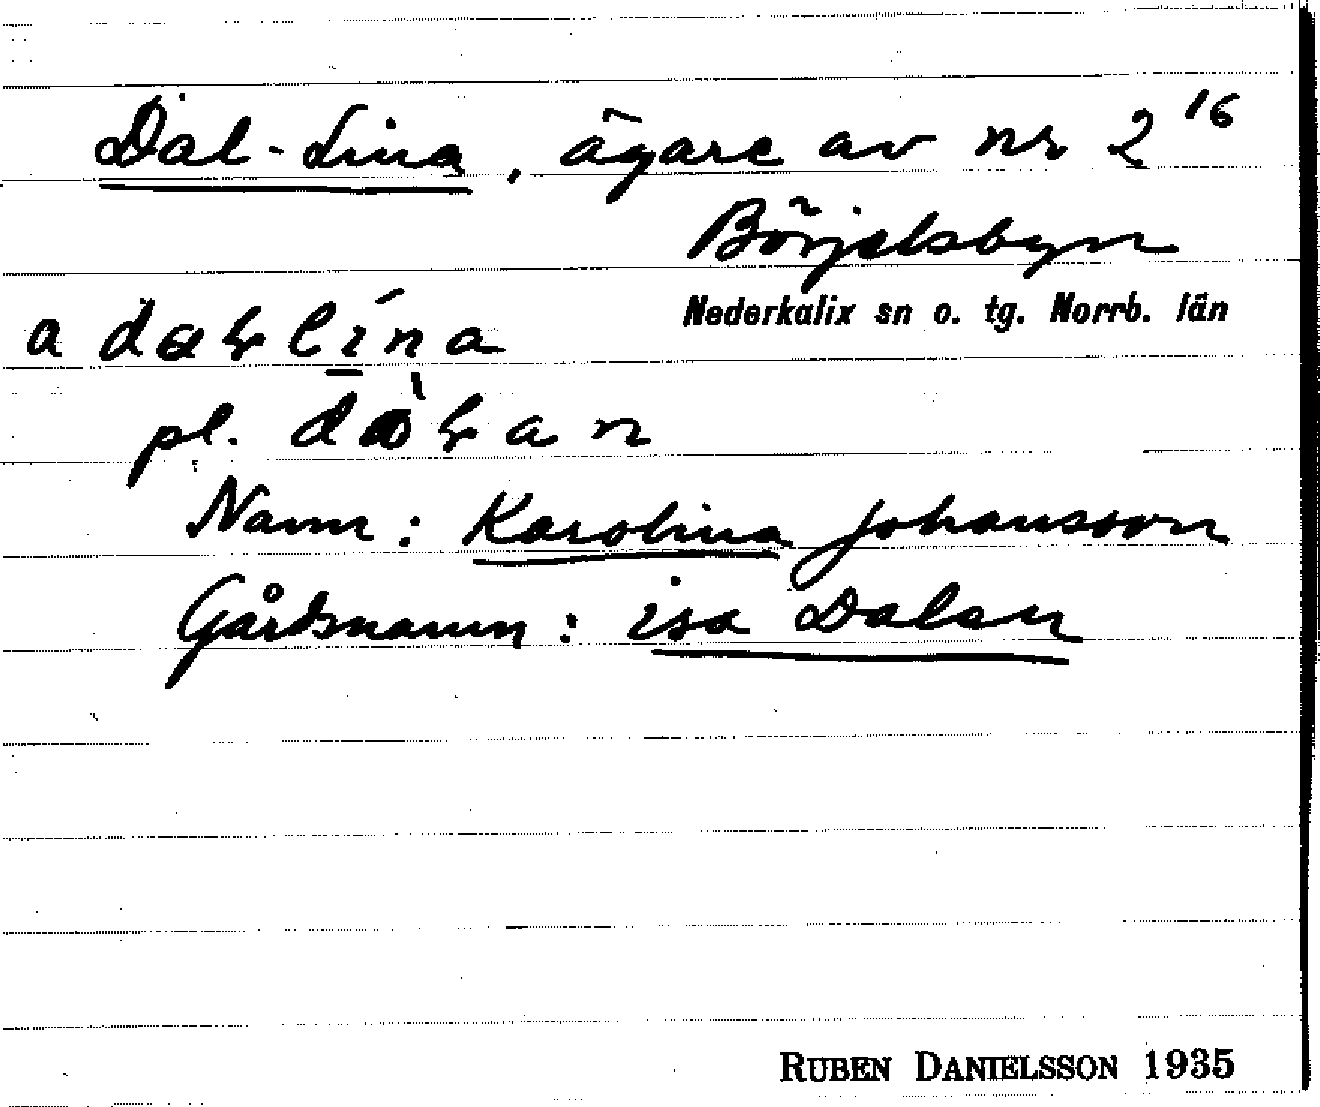 Dal-Lina, ägare av nr 2 16
Börjelsbyn
Nederkalix sn o. tg. Norrb. län
a daɽlína
pl. dàɽan
Namn: Karolina Johansson
Gårdsnamn: isa Dalan
RUBEN DANIELSSON 1935